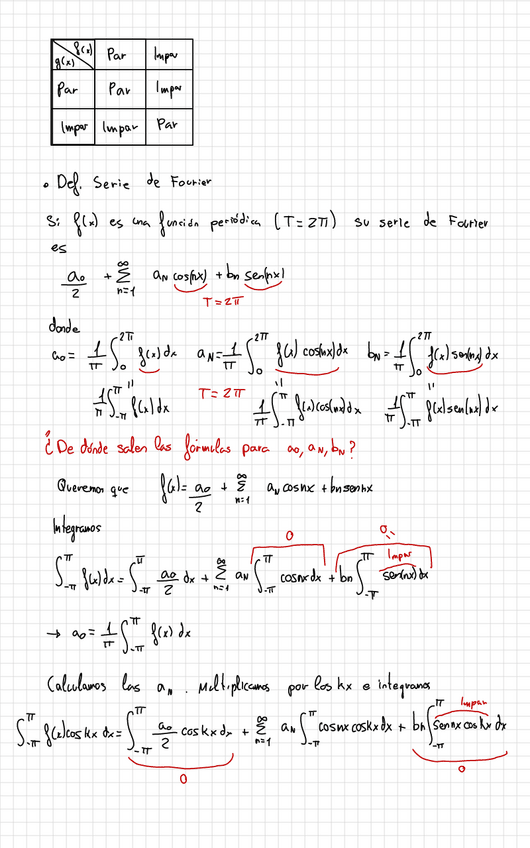 f(x) Par Impar
g(x)
Par Par Impar
Impar Impar Par
• Def. Serie de Fourier
Si f(x) es una función periódica (T=2π) su serie de Fourier
es
a₀/2 + ∑_{n=1}^{∞} aₙ cos(nx) + bₙ sen(nx)
T=2π
donde
a₀ = 1/π ∫_0^{2π} f(x)dx aₙ = 1/π ∫_0^{2π} f(x) cos(nx)dx bₙ = 1/π ∫_0^{2π} f(x) sen(nx) dx
1/π ∫_{-π}^{π} f(x)dx T=2π 1/π ∫_{-π}^{π} f(x)cos(nx)dx 1/π ∫_{-π}^{π} f(x)sen(nx)dx
¿De dónde salen las fórmulas para a₀, aₙ, bₙ?
Queremos que f(x) = a₀/2 + ∑_{n=1}^{∞} aₙ cosnx + bₙ sennx
Integramos
0 0
Impar
∫_{-π}^{π} f(x)dx = ∫_{-π}^{π} a₀/2 dx + ∑_{n=1}^{∞} aₙ ∫_{-π}^{π} cosnx dx + bₙ ∫_{-π}^{π} sen(nx)dx
→ a₀ = 1/π ∫_{-π}^{π} f(x) dx
Calculamos las aₙ. Multiplicamos por los kx e integramos
Impar
∫_{-π}^{π} f(x)cos kx dx = ∫_{-π}^{π} a₀/2 cos kx dx + ∑_{n=1}^{∞} aₙ ∫_{-π}^{π} cosnx coskx dx + bₙ ∫_{-π}^{π} sennx cos kx dx
0 0